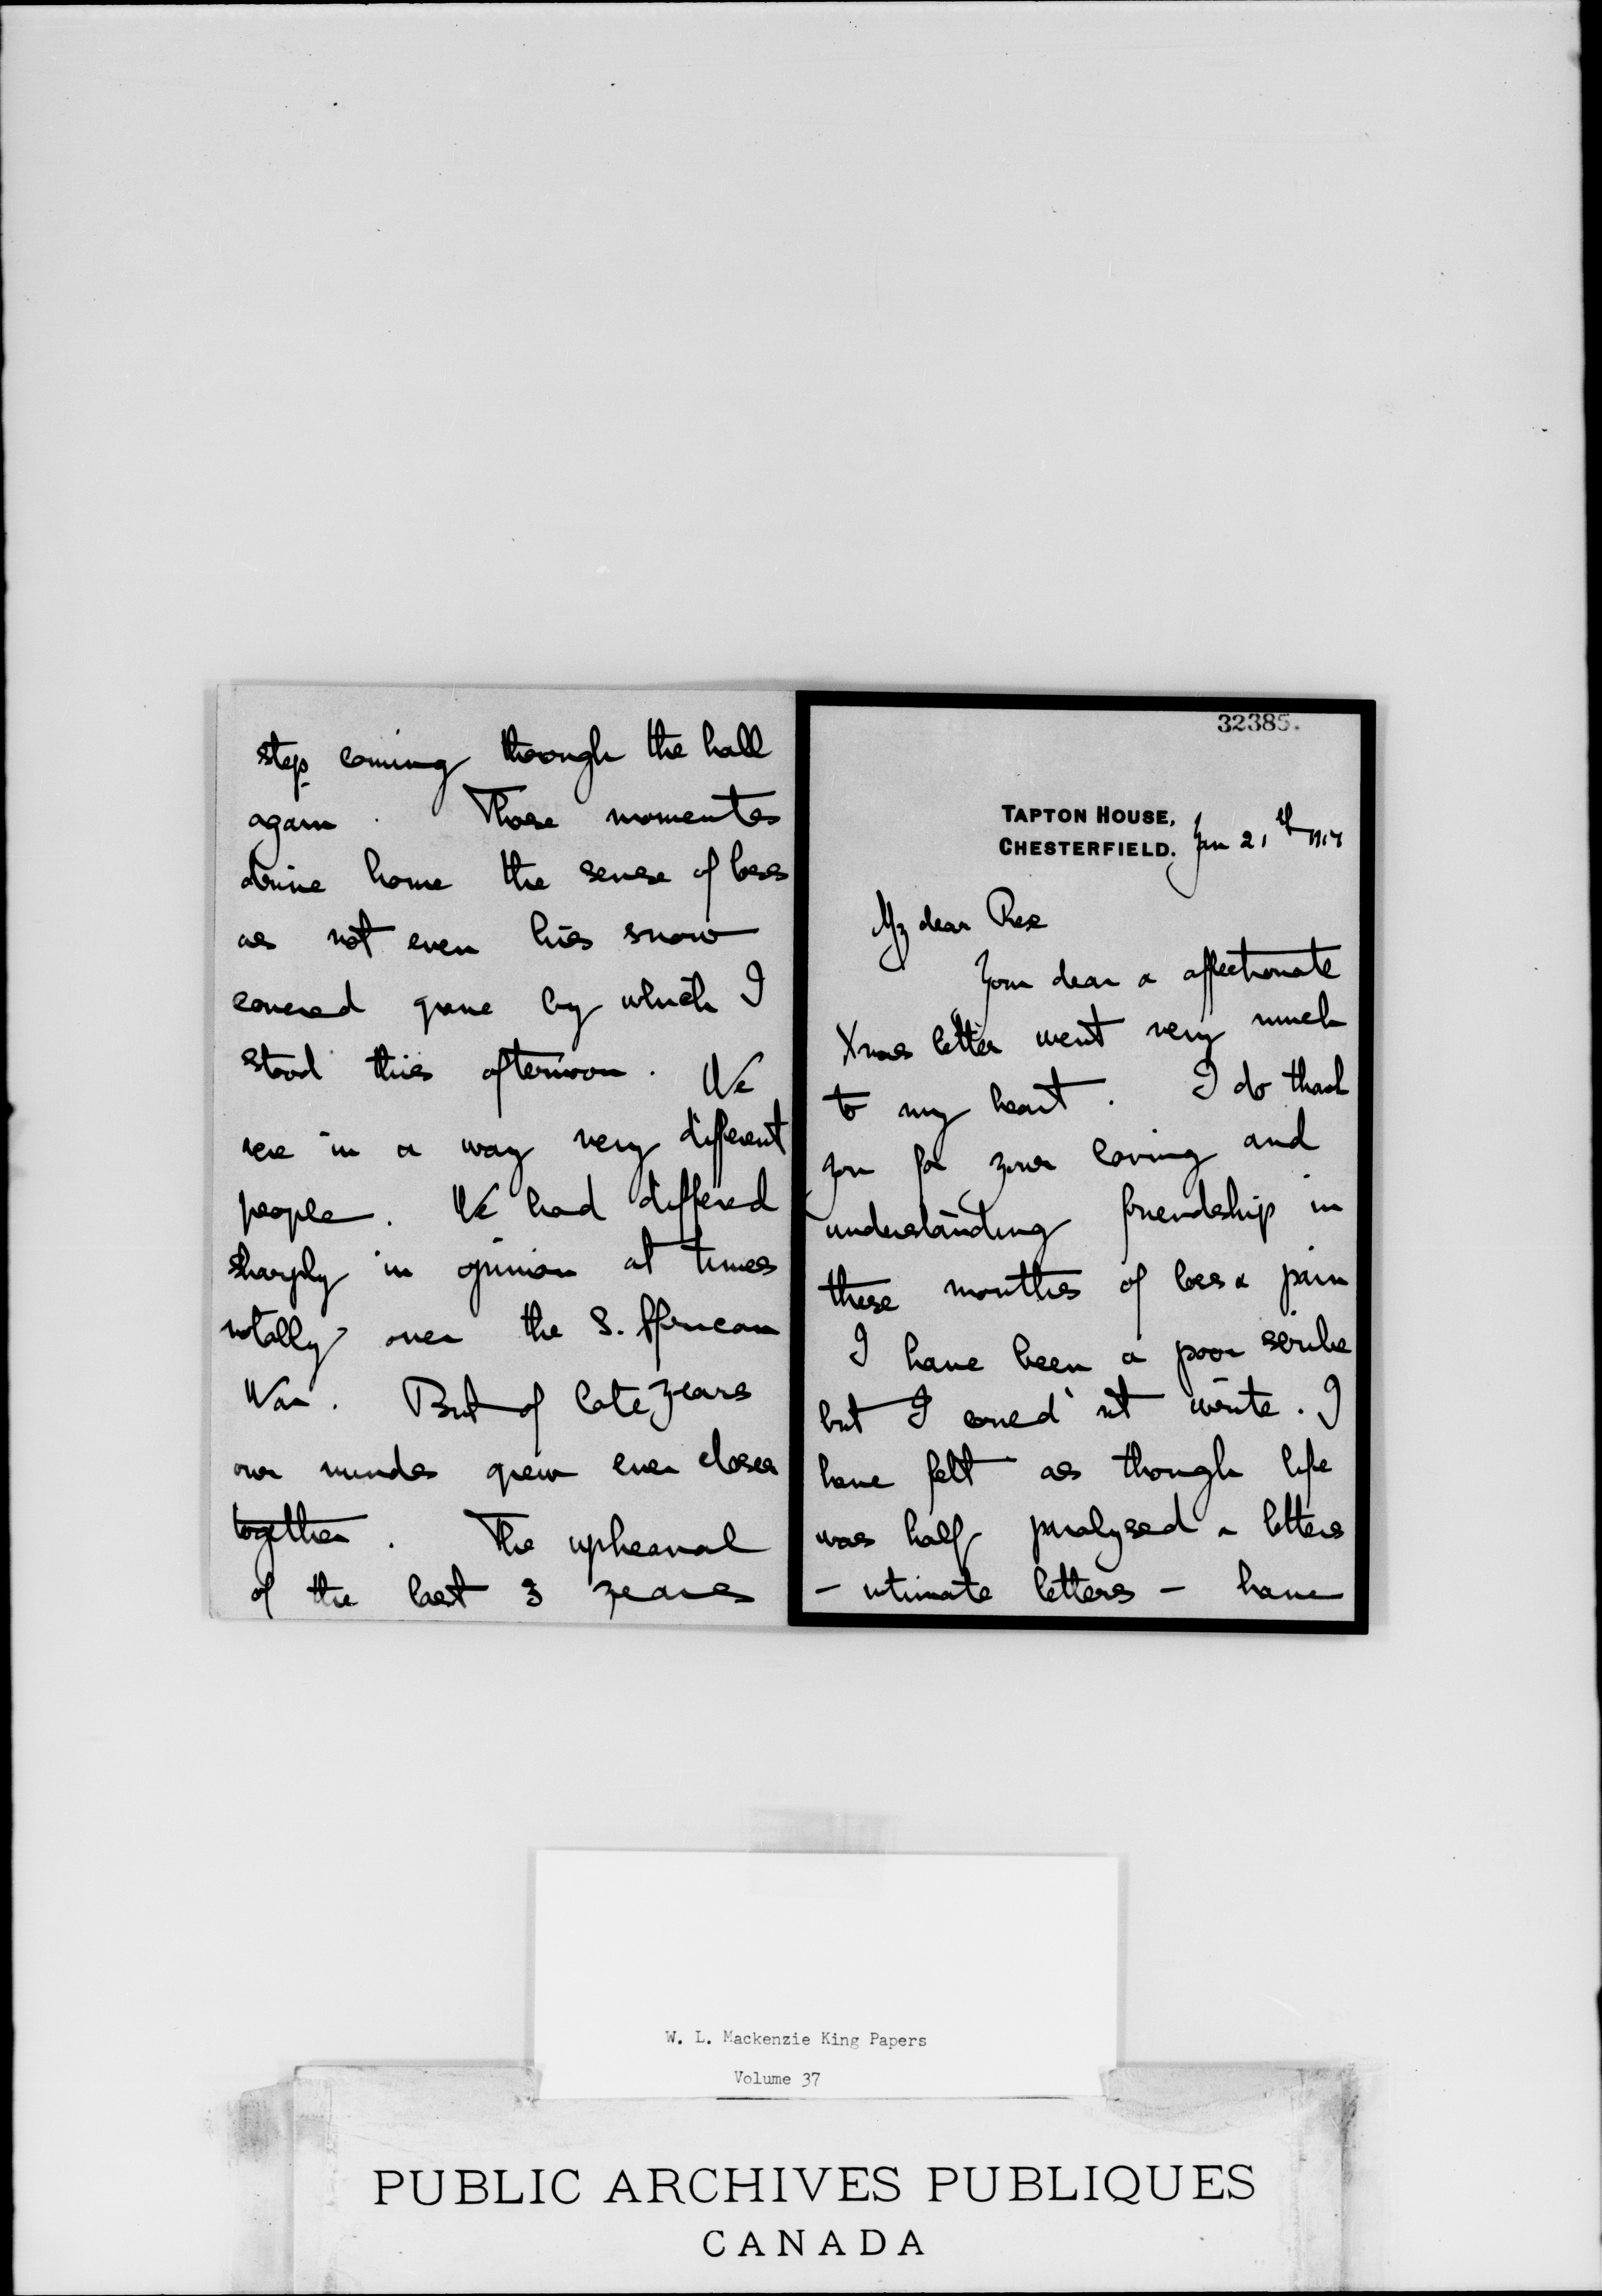 32385.
TAPTON HOUSE,
CHESTERFIELD. Jan 21st 1917
My dear Rex
Your dear & affectionate
Xmas letter went very much
to my heart. I do thank
you for your loving and
understanding friendship in
these months of loss & pain
I have been a poor scribe
but I coud'nt write. I
have felt as though life
was half paralysed & letters
- intimate letters - have
step coming through the hall
again. Those moments
drive home the sense of loss
as not even his snow
covered grave by which I
stood this afternoon. We
were in a way very different
people. We had differed
sharply in opinion at times
notably over the S. African
War. But of late years
our minds grew ever closer
together. The upheaval
of the last 3 years
W. L. Mackenzie King Papers
Volume 37
PUBLIC ARCHIVES PUBLIQUES
CANADA